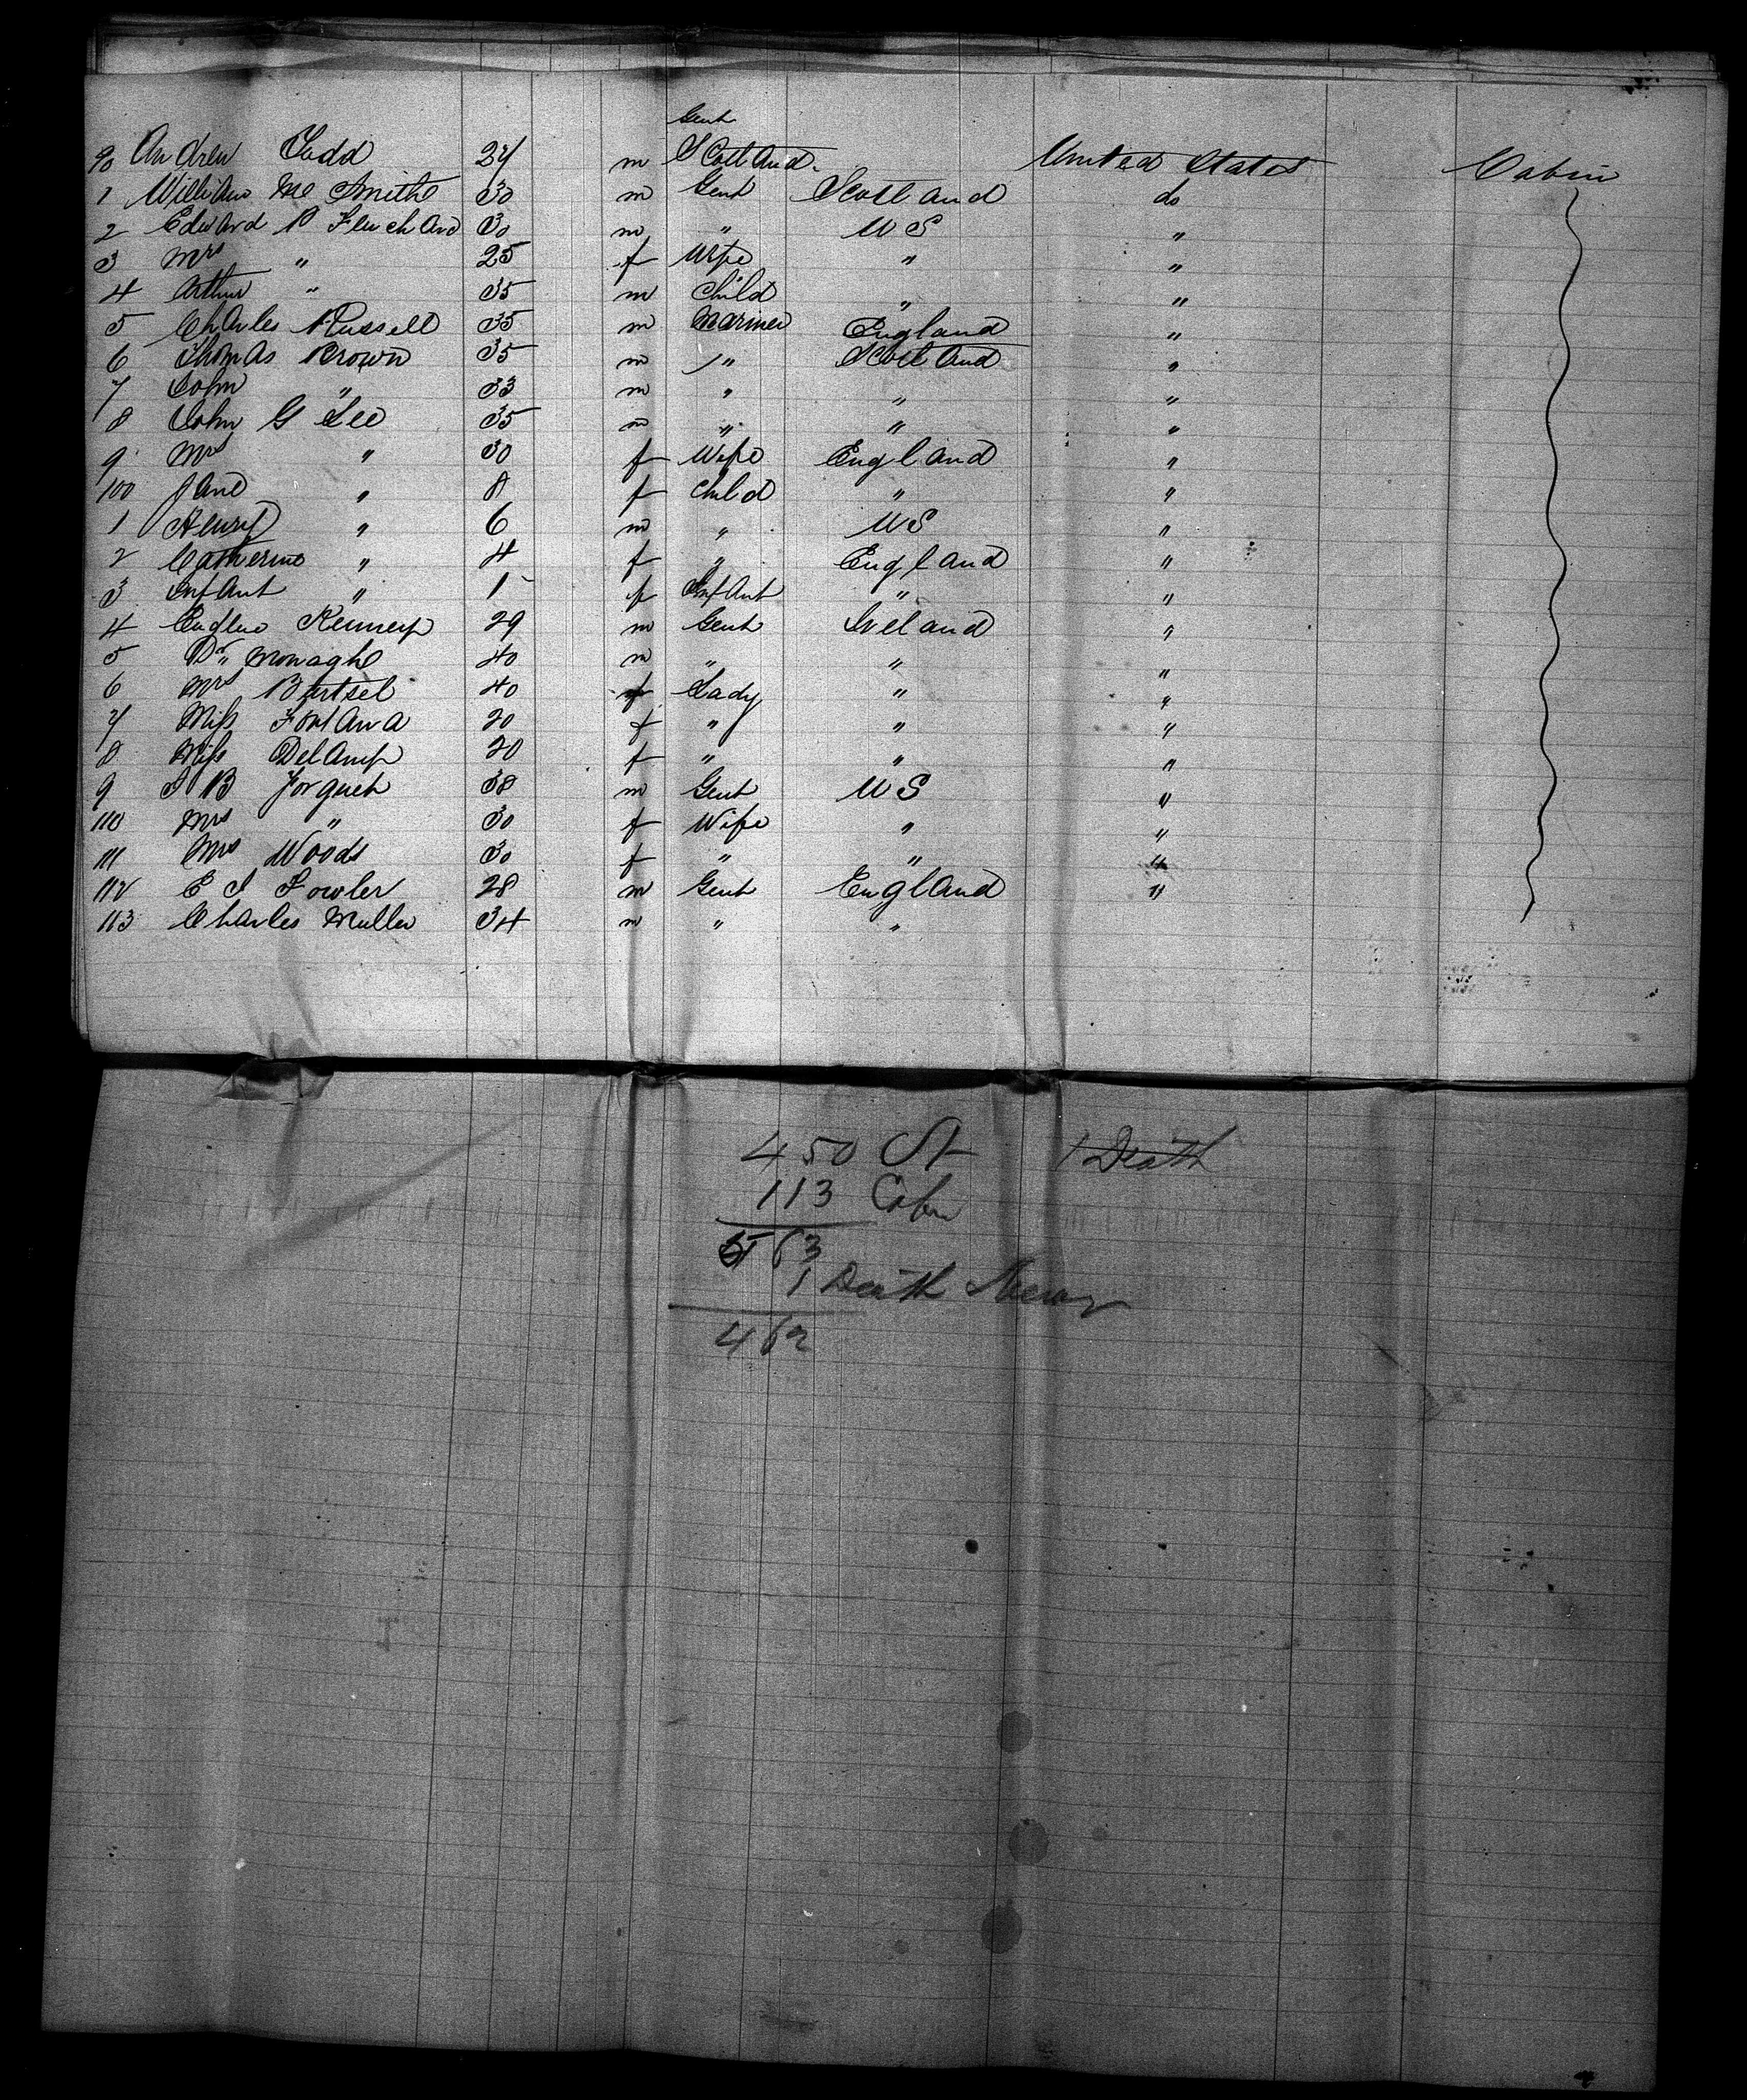 Gent
90 Andrew Todd 27 m Scotland. United States Cabin
1 William Mc Smith 30 m Gent Scotland do
2 Edward P 30 m " U S "
3 Mrs " 25 f Wife " "
4 Arthur " 35 m Child " "
5 Charles Russell 35 m Mariner England "
6 Thomas Brown 35 m " Scotland "
7 John " 33 m " " "
8 John G Lee 35 m " " "
9 Mrs " 30 f Wife England "
100 Jane " 8 f Child " "
1 Henry " 6 m " U S "
2 Catherine " 4 f " England "
3 Infant " 1 f Infant " "
4 Kennery 29 m Gent Ireland "
5 Dr Monaghe 40 m " " "
6 Mrs 40 f Lady " "
7 Miss Fontana 20 f " " "
8 Miss Delamp 20 f " " "
9 J B 38 m Gent U S "
110 Mrs " 30 f Wife " "
111 Mrs Woods 30 f " " "
112 E J Fowler 28 m Gent England "
113 Charles Muller 34 m " "
450 St 1 Death
113 Cabn
563
1 Death
462